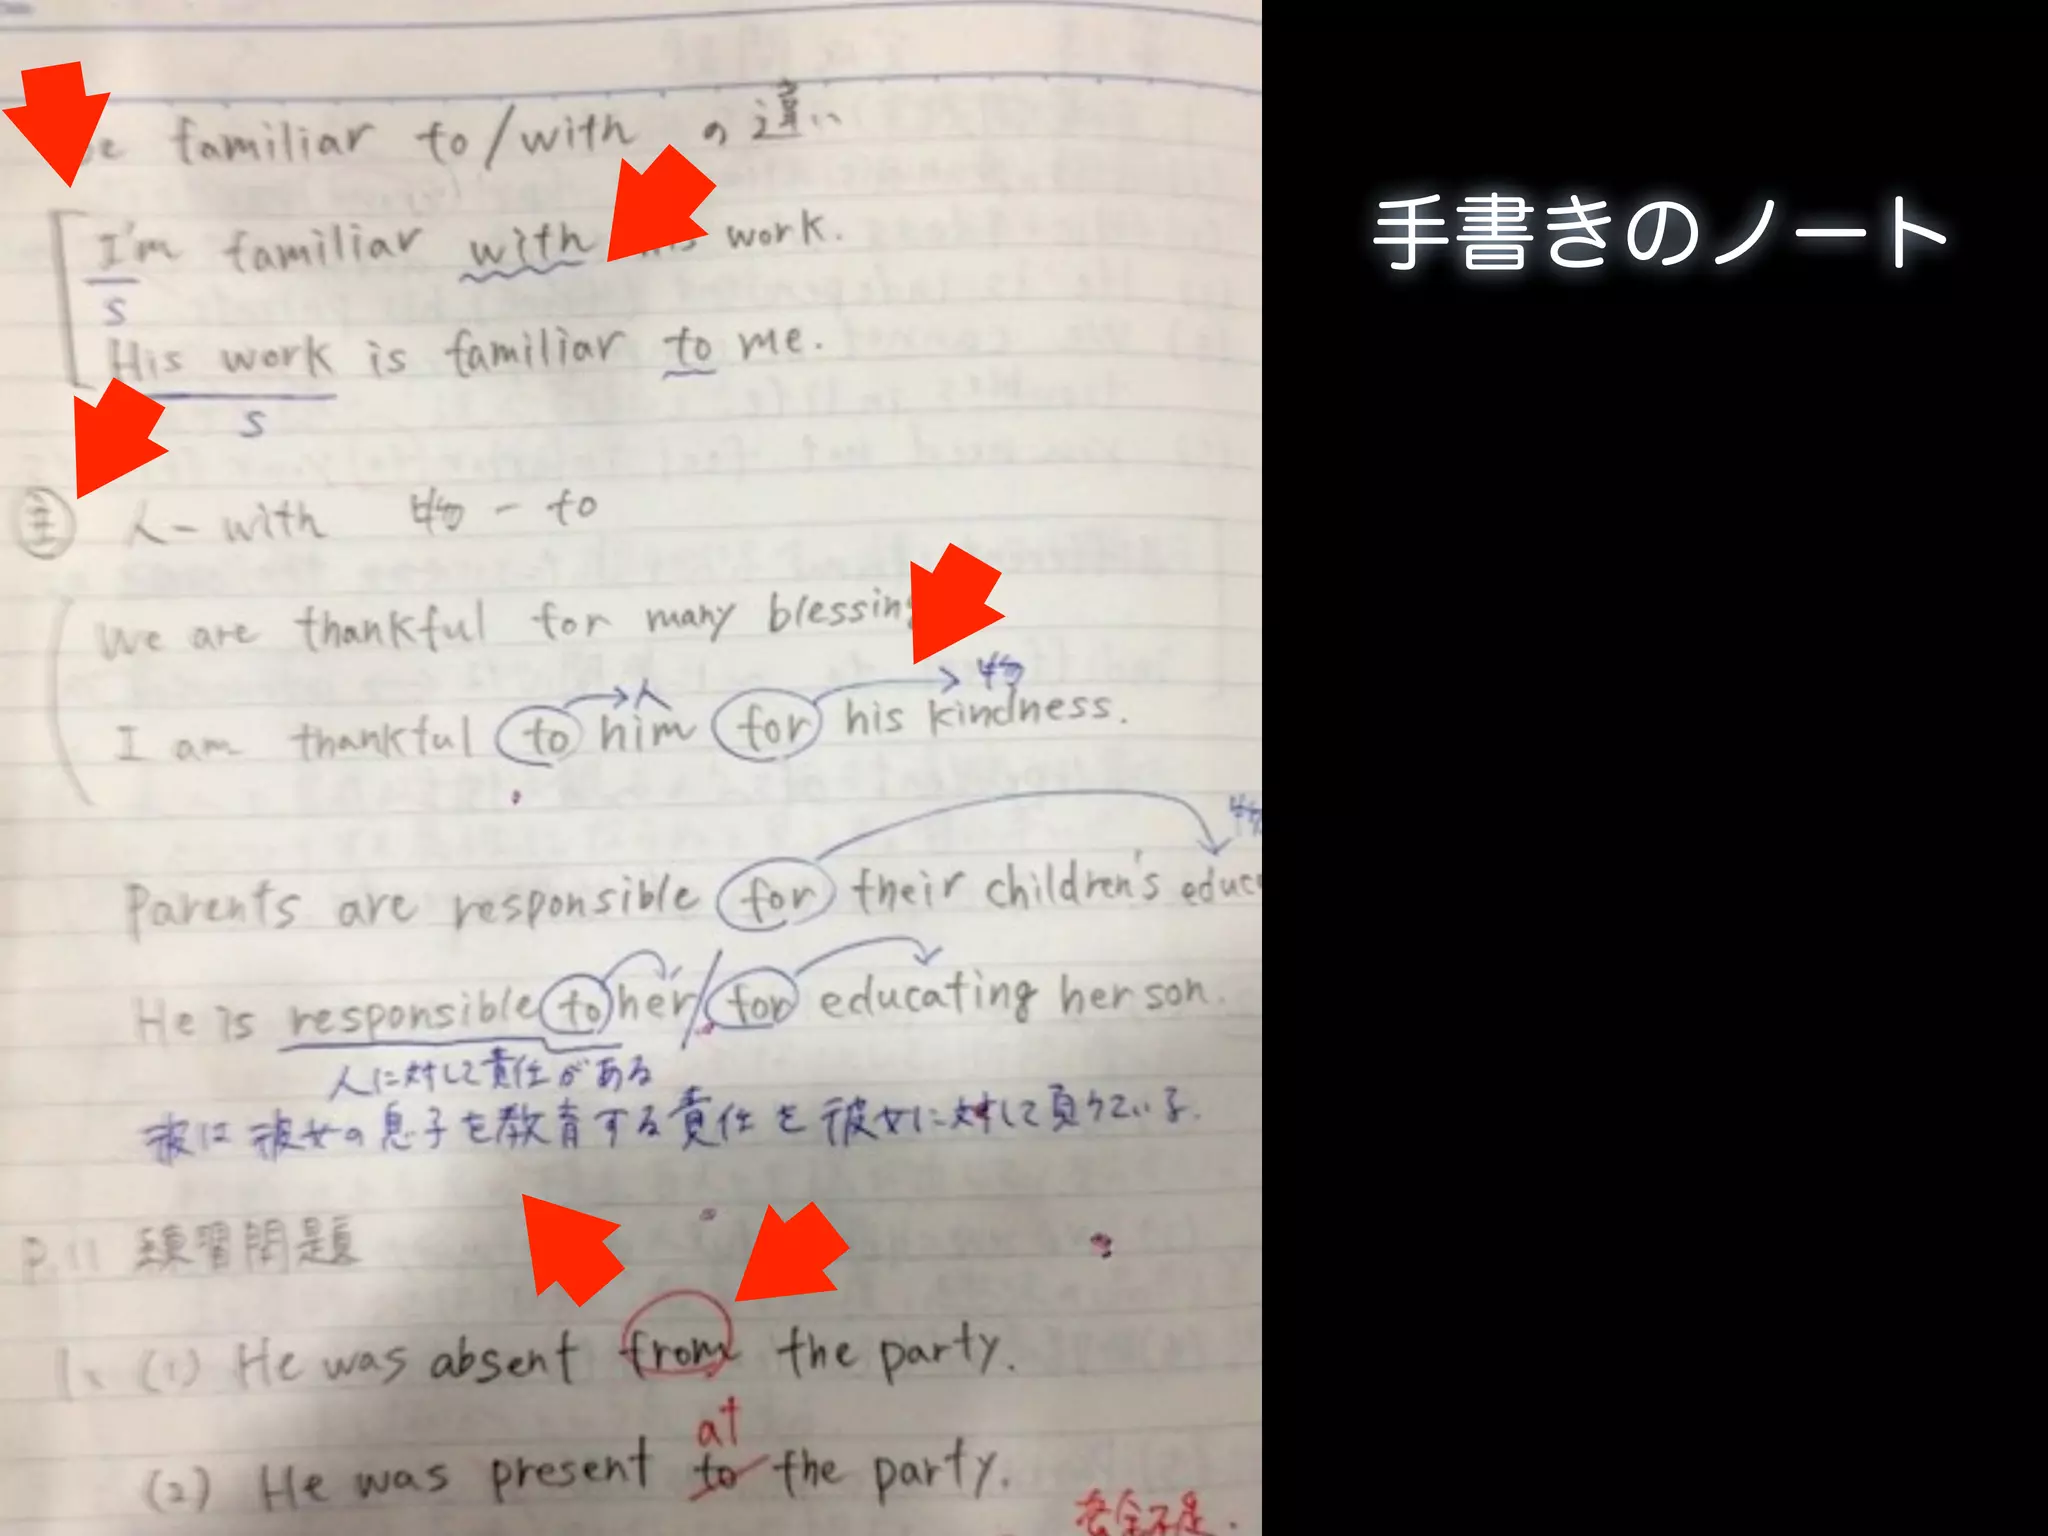 be familiar to/with の違い
I'm familiar with his work.
S
His work is familiar to me.
S
主 人－with 物－to
We are thankful for many blessing
人 物
I am thankful to him for his kindness.
物
Parents are responsible for their children's educ
He is responsible to her/for educating her son.
人に対して責任がある
彼は彼女の息子を教育する責任を彼女に対して負っている.
P.11 練習問題
1、(1) He was absent from the party.
at
(2) He was present to the party.
手書きのノート